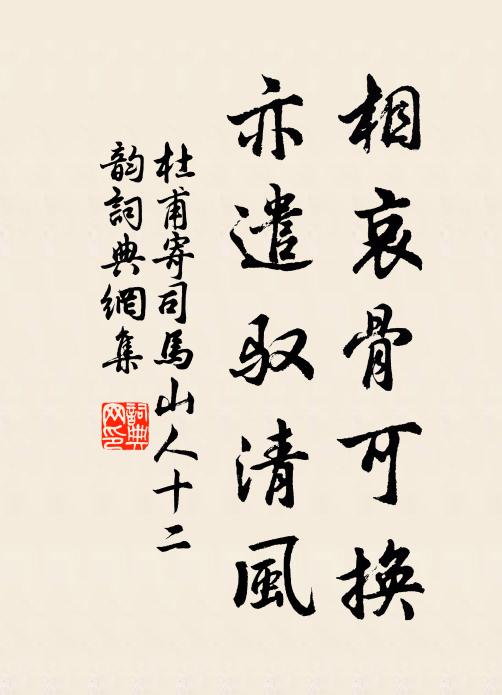 相哀骨可換
亦遣馭清風
杜甫寄司馬山人十二
韵詞典網集
詞典網印